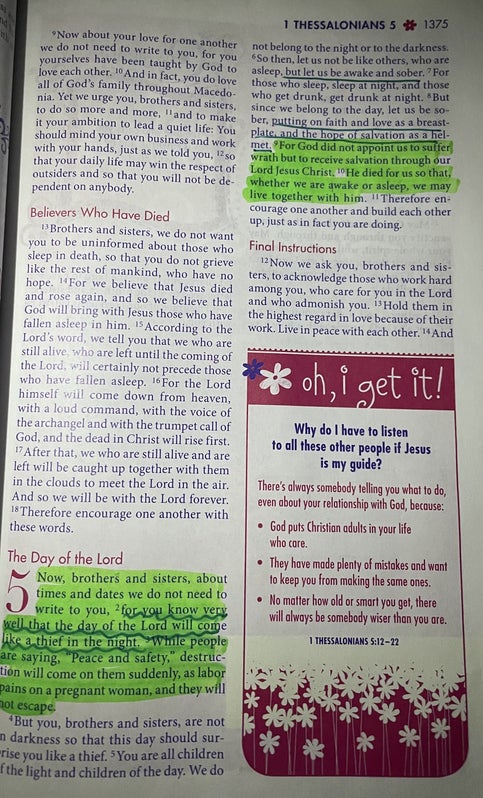 1 THESSALONIANS 5 1375
⁹Now about your love for one another
we do not need to write to you, for you
yourselves have been taught by God to
love each other. ¹⁰And in fact, you do love
all of God's family throughout Macedo-
nia. Yet we urge you, brothers and sisters,
to do so more and more, ¹¹and to make
it your ambition to lead a quiet life: You
should mind your own business and work
with your hands, just as we told you, ¹²so
that your daily life may win the respect of
outsiders and so that you will not be de-
pendent on anybody.
Believers Who Have Died
¹³Brothers and sisters, we do not want
you to be uninformed about those who
sleep in death, so that you do not grieve
like the rest of mankind, who have no
hope. ¹⁴For we believe that Jesus died
and rose again, and so we believe that
God will bring with Jesus those who have
fallen asleep in him. ¹⁵According to the
Lord's word, we tell you that we who are
still alive, who are left until the coming of
the Lord, will certainly not precede those
who have fallen asleep. ¹⁶For the Lord
himself will come down from heaven,
with a loud command, with the voice of
the archangel and with the trumpet call of
God, and the dead in Christ will rise first.
¹⁷After that, we who are still alive and are
left will be caught up together with them
in the clouds to meet the Lord in the air.
And so we will be with the Lord forever.
¹⁸Therefore encourage one another with
these words.
The Day of the Lord
5 Now, brothers and sisters, about
times and dates we do not need to
write to you, ²for you know very
well that the day of the Lord will come
like a thief in the night. ³While people
are saying, "Peace and safety," destruc-
tion will come on them suddenly, as labor
pains on a pregnant woman, and they will
not escape.
⁴But you, brothers and sisters, are not
n darkness so that this day should sur-
rise you like a thief. ⁵You are all children
f the light and children of the day. We do
not belong to the night or to the darkness.
⁶So then, let us not be like others, who are
asleep, but let us be awake and sober. ⁷For
those who sleep, sleep at night, and those
who get drunk, get drunk at night. ⁸But
since we belong to the day, let us be so-
ber, putting on faith and love as a breast-
plate, and the hope of salvation as a hel-
met. ⁹For God did not appoint us to suffer
wrath but to receive salvation through our
Lord Jesus Christ. ¹⁰He died for us so that,
whether we are awake or asleep, we may
live together with him. ¹¹Therefore en-
courage one another and build each other
up, just as in fact you are doing.
Final Instructions
¹²Now we ask you, brothers and sis-
ters, to acknowledge those who work hard
among you, who care for you in the Lord
and who admonish you. ¹³Hold them in
the highest regard in love because of their
work. Live in peace with each other. ¹⁴And
oh, i get it!
Why do I have to listen
to all these other people if Jesus
is my guide?
There's always somebody telling you what to do,
even about your relationship with God, because:
• God puts Christian adults in your life
who care.
• They have made plenty of mistakes and want
to keep you from making the same ones.
• No matter how old or smart you get, there
will always be somebody wiser than you are.
1 THESSALONIANS 5:12–22